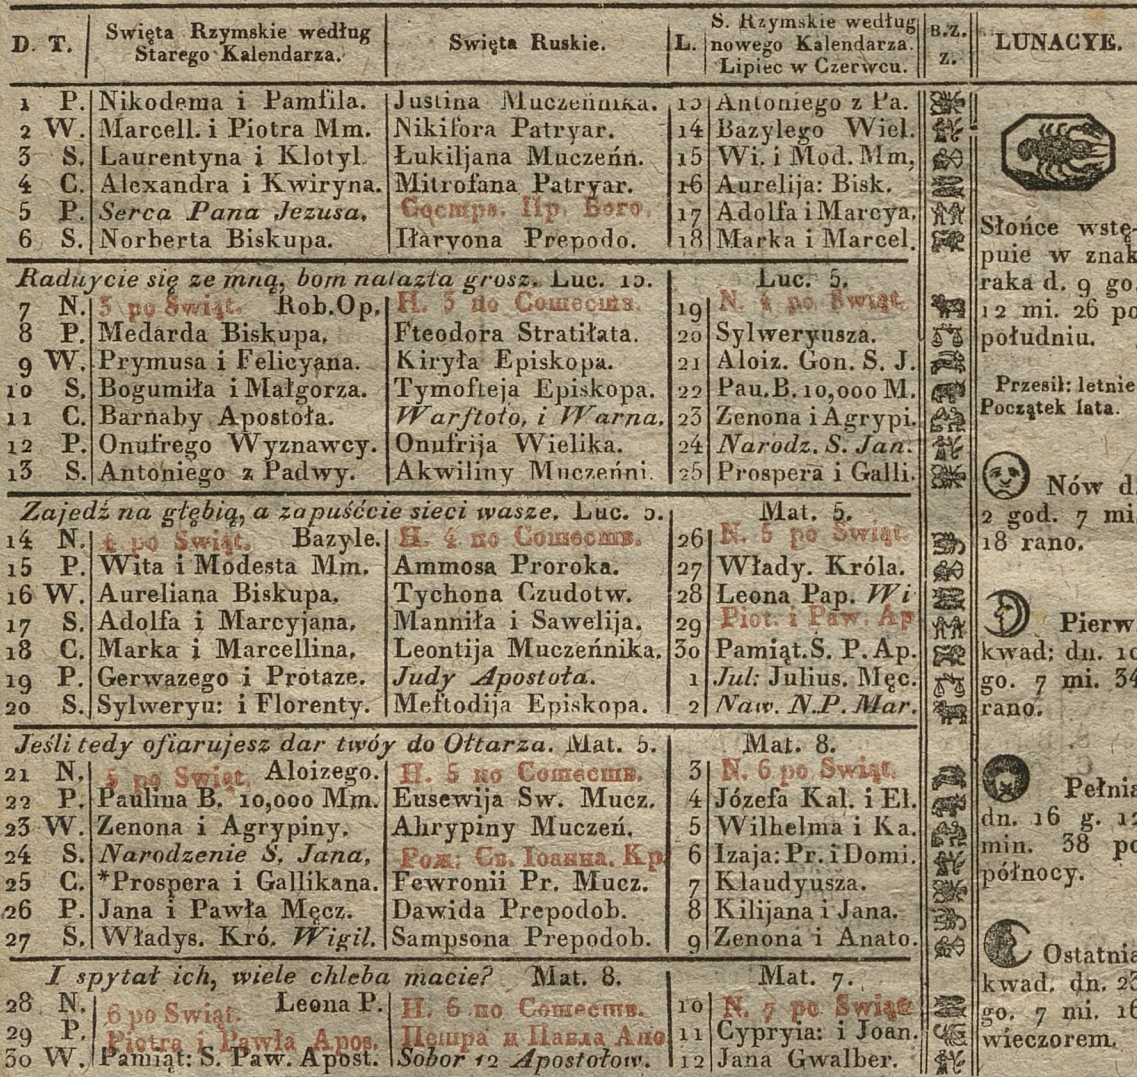 D. T. Swięta Rzymskie według Starego Kalendarza. Swięta Ruskie. L. S. Rzymskie według nowego Kalendarza. Lipiec w Czerwcu. B.Z. z. LUNACYE.
1 P. Nikodema i Pamfila. Justina Muczeńnika. 13 Antoniego z Pa.
2 W. Marcell. i Piotra Mm. Nikifora Patryar. 14 Bazylego Wiel.
3 S. Laurentyna i Klotyl. Łukiljana Muczeńn. 15 Wi. i Mod. Mm,
4 C. Alexandra i Kwiryna. Mitrofana Patryar. 16 Aurelija: Bisk.
5 P. Serca Pana Jezusa. 17 Adolfa i Marcya.
6 S. Norberta Biskupa. Iłaryona Prepodo. 18 Marka i Marcel.
Raduycie się ze mną, bom nalazła grosz. Luc. 15. Luc. 5.
7 N. 3 po Swiąt. Rob.Op. Н. 3 по Сошеств. 19 N. 4 po Swiąt.
8 P. Medarda Biskupa. Fteodora Stratiłata. 20 Sylweryusza.
9 W. Prymusa i Felicyana. Kiryła Episkopa. 21 Aloiz. Gon. S. J.
10 S. Bogumiła i Małgorza. Tymofteja Episkopa. 22 Pau.B. 10,000 M.
11 C. Barnaby Apostoła. Warftoło, i Warna. 23 Zenona i Agrypi.
12 P. Onufrego Wyznawcy. Onufrija Wielika. 24 Narodz. S. Jan.
13 S. Antoniego z Padwy. Akwiliny Muczeńni. 25 Prospera i Galli.
Zajedź na głębią, a zapuśćcie sieci wasze. Luc. 5. Mat. 5.
14 N. 4 po Swiąt. Bazyle. Н. 4 по Сошеств. 26 N. 5 po Swiąt.
15 P. Wita i Modesta Mm. Ammosa Proroka. 27 Włady. Króla.
16 W. Aureliana Biskupa. Tychona Czudotw. 28 Leona Pap. Wi
17 S. Adolfa i Marcyjana, Manniła i Sawelija. 29 Piot. i Paw. Ap
18 C. Marka i Marcellina, Leontija Muczeńnika. 30 Pamiąt.S. P. Ap.
19 P. Gerwazego i Protaze. Judy Apostoła. 1 Jul: Julius. Męc.
20 S. Sylweryu: i Florenty. Meftodija Episkopa. 2 Naw. N.P. Mar.
Jeśli tedy ofiarujesz dar twóy do Ołtarza. Mat. 5. Mat. 8.
21 N. 5 po Swiąt, Aloizego. Н. 5 по Сошеств. 3 N. 6 po Swiąt.
22 P. Paulina B. 10,000 Mm. Eusewija Sw. Mucz. 4 Józefa Kal. i El.
23 W. Zenona i Agrypiny. Ahrypiny Muczeń. 5 Wilhelma i Ka.
24 S. Narodzenie S. Jana, Рож: Св. Іоанна. Кр 6 Izaja: Pr. i Domi.
25 C. *Prospera i Gallikana. Fewronii Pr. Mucz. 7 Klaudyusza.
26 P. Jana i Pawła Męcz. Dawida Prepodob. 8 Kilijana i Jana.
27 S. Władys. Kró. Wigil. Sampsona Prepodob. 9 Zenona i Anato.
I spytał ich, wiele chleba macie? Mat. 8. Mat. 7.
28 N. 6 po Swiąt. Leona P. Н. 6 по Сошеств. 10 N. 7 po Swiąt
29 P. Piotra i Pawła Apos. Петра и Павла Апо 11 Cypryia: i Joan.
30 W. Pamiąt: S. Paw. Apost. Sobor 12 Apostołow. 12 Jana Gwalber.
Słońce wstę-
puie w znak
raka d. 9 go.
12 mi. 26 po
południu.
Przesil: letnie
Początek lata.
Nów d.
2 god. 7 mi
18 rano.
Pierw.
kwad: dn. 10
go. 7 mi. 34
rano.
Pełnia
dn. 16 g. 12
min. 38 po
północy.
Ostatnia
kwad. dn. 23
go. 7 mi. 16
wieczorem.